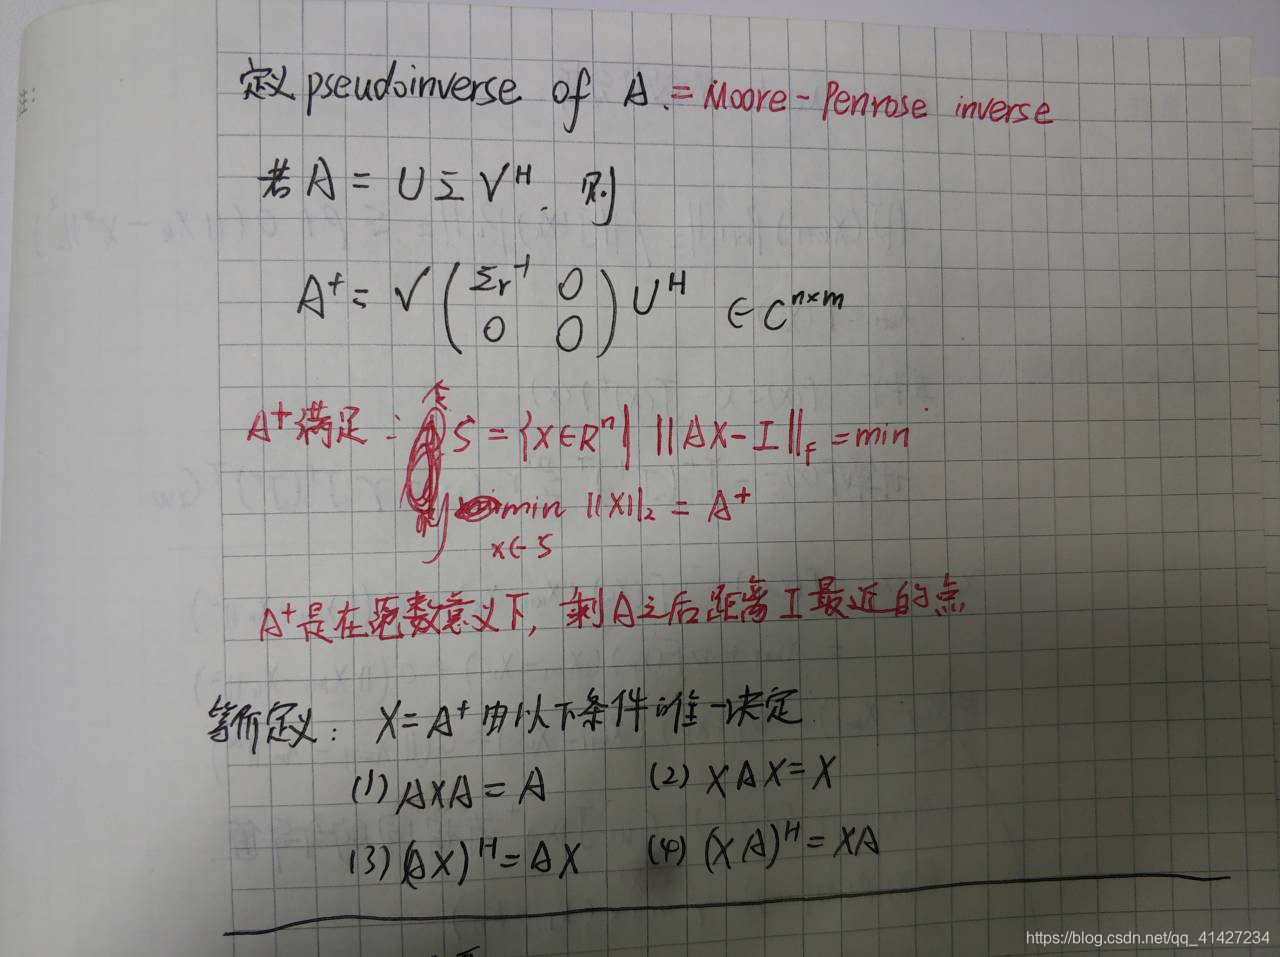 定义 pseudoinverse of A. = Moore-Penrose inverse
若 A = UΣV^H. 则
A^+ = V ( Σr^-1 0 ; 0 0 ) U^H ∈ C^{n×m}
A^+满足: 令 S = {X∈R^n| ||AX-I||_F = min
则 min ||X||_2 = A^+
x∈S
A^+是在范数意义下, 乘A之后距离 I 最近的点
等价定义: X=A^+ 由以下条件唯一决定
(1) AXA = A (2) XAX = X
(3) (AX)^H = AX (4) (XA)^H = XA
https://blog.csdn.net/qq_41427234